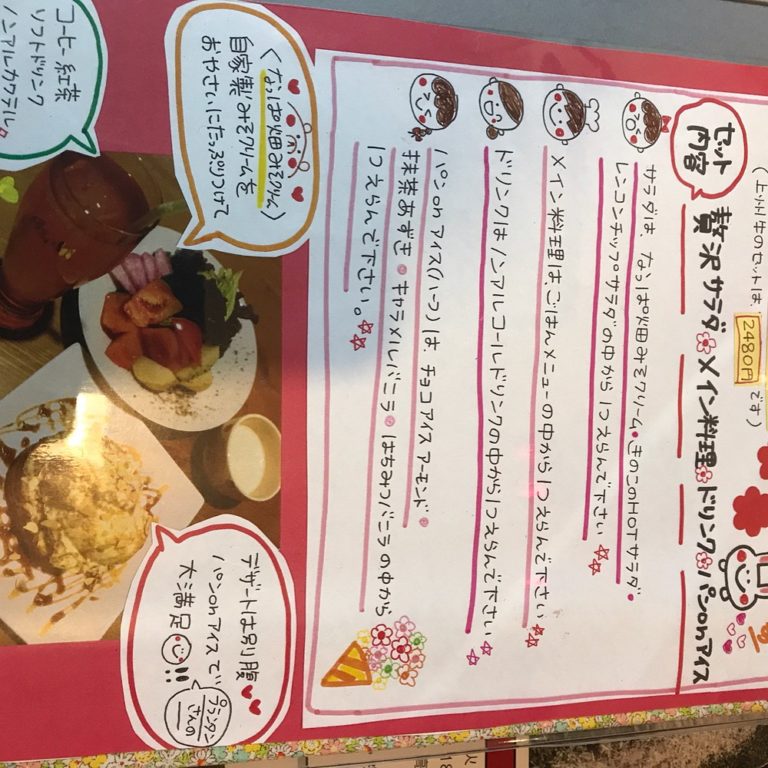 (上州牛のセットは、2480円です)
セット内容
贅沢サラダ メイン料理 ドリンク パンonアイス
サラダは、なっぱ畑みそクリーム・きのこのHOTサラダ・
レンコンチップサラダの中から1つえらんで下さい
メイン料理は、ごはんメニューの中から1つえらんで下さい
ドリンクはノンアルコールドリンクの中から1つえらんで下さい
パンonアイス(ハーフ)は、チョコアイスアーモンド・
抹茶あずき・キャラメルバニラ・はちみつバニラの中から
1つえらんで下さい。
〈なっぱ畑みそクリーム〉
自家製みそクリームを
おやさいにたっぷりつけて
コーヒー 紅茶
ソフトドリンク
ノンアルカクテル。
デザートは別り腹
パンonアイスで
大満足!!
プランタン
さんの